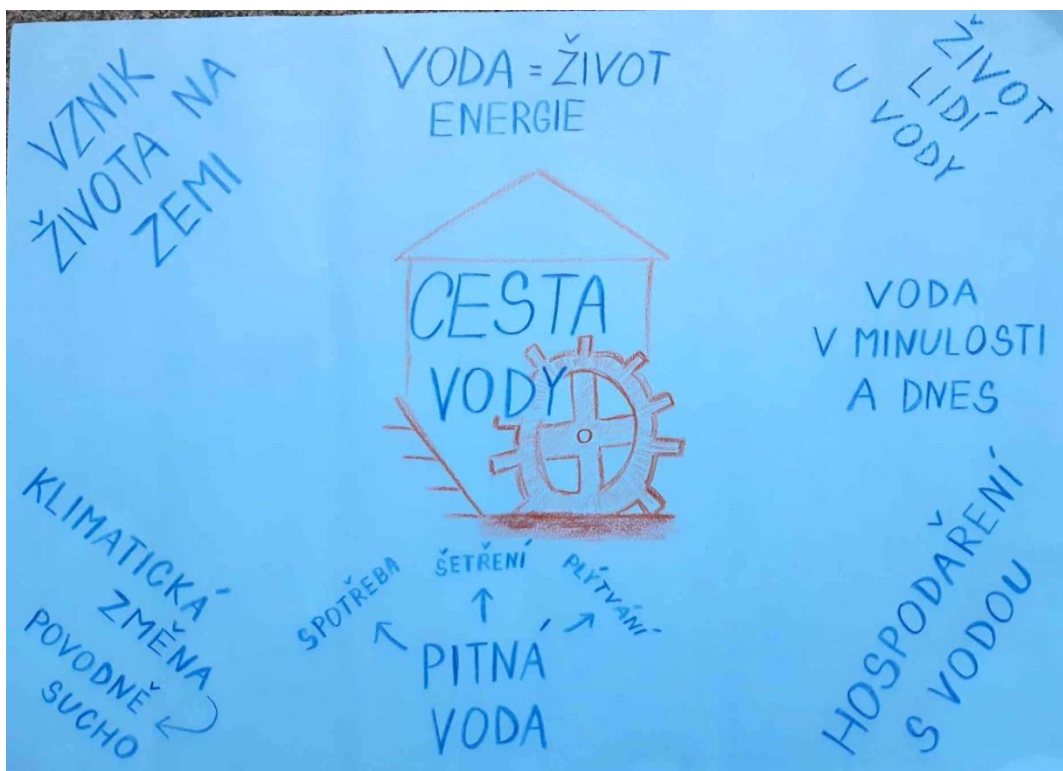 VZNIK
ŽIVOTA NA
ZEMI
VODA = ŽIVOT
ENERGIE
ŽIVOT
LIDÍ
U VODY
CESTA
VODY
VODA
V MINULOSTI
A DNES
KLIMATICKÁ
ZMĚNA
POVODNĚ
SUCHO
SPOTŘEBA
ŠETŘENÍ
PLÝTVÁNÍ
PITNÁ
VODA
HOSPODAŘENÍ
S VODOU